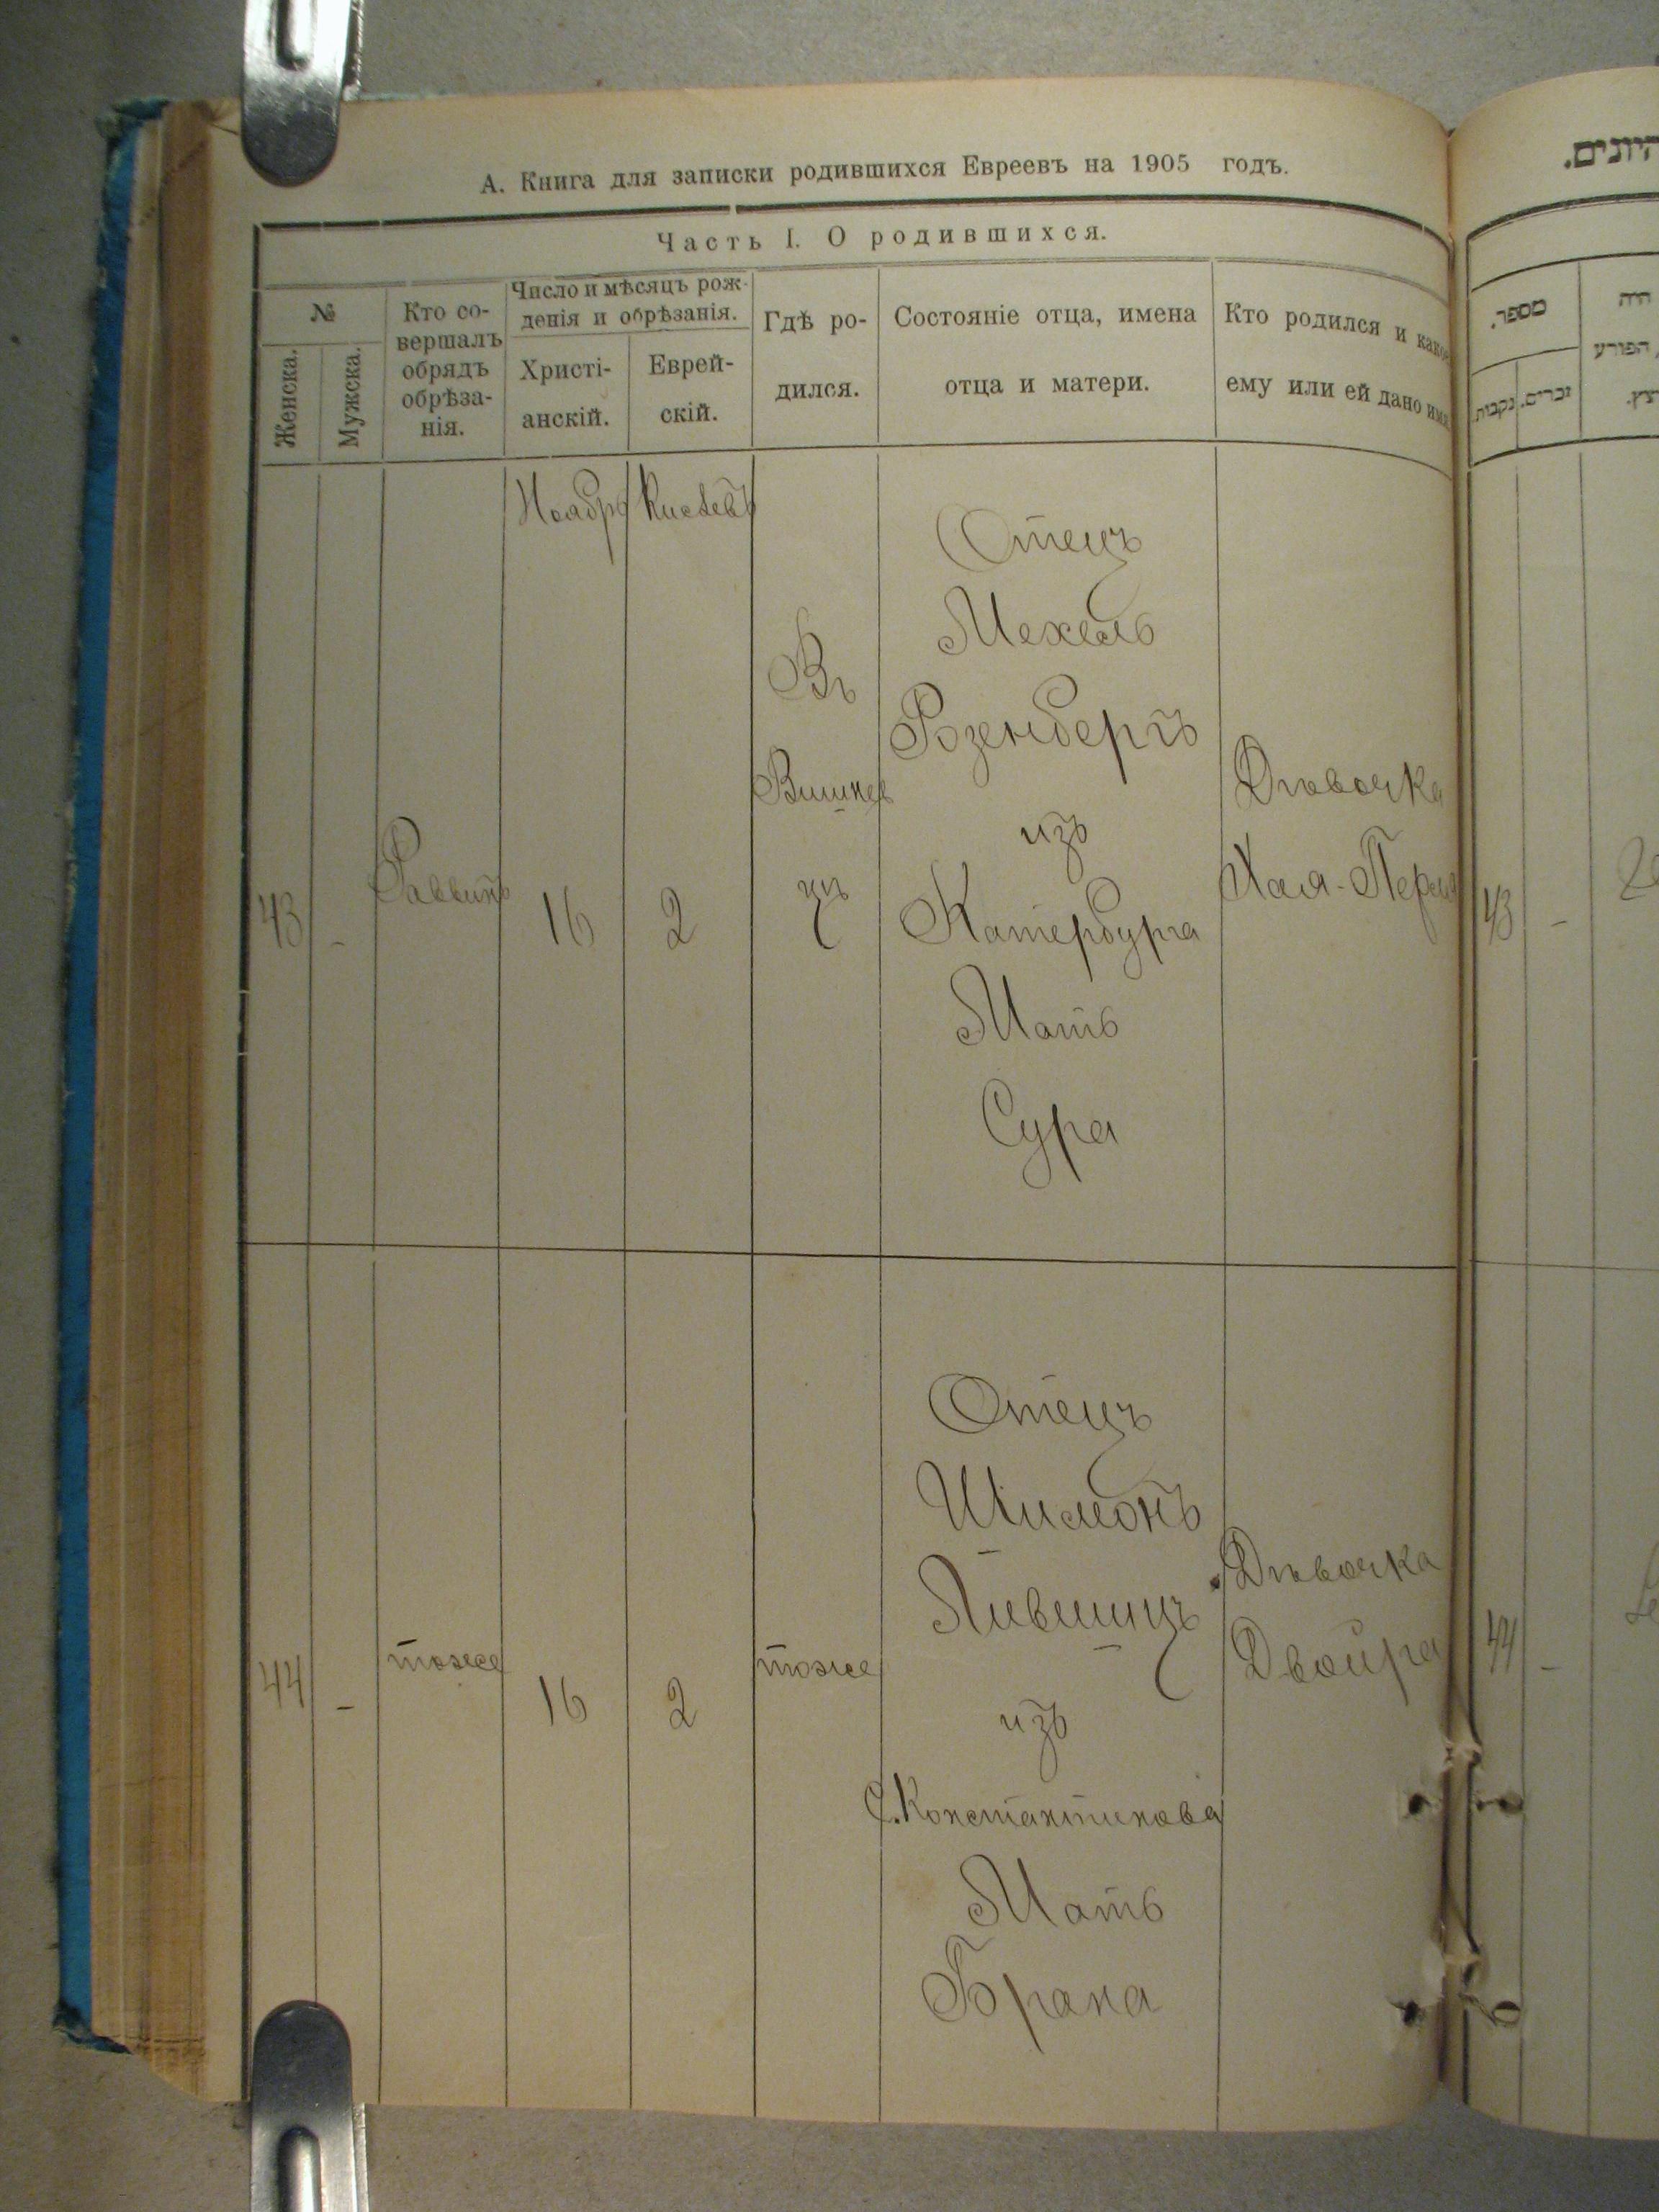 А. Книга для записки родившихся Евреевъ на 1905 годъ.
Часть I. О родившихся.
№
Женска.
Мужска.
Кто со-
вершалъ
обрядъ
обрѣза-
нія.
Число и мѣсяцъ рож-
денія и обрѣзанія.
Христі-
анскій.
Еврей-
скій.
Гдѣ ро-
дился.
Состояніе отца, имена
отца и матери.
Кто родился и какое
ему или ей дано имя
43
-
Раввинъ
Ноябрь
16
Кислевъ
2
Въ
Вишнев
цъ
Отецъ
Мехель
Розенбергъ
изъ
Катербурга
Мать
Сура
Дѣвочка
Хая-Перля
44
-
тоже
16
2
тоже
Отецъ
Шимонъ
Лившицъ
изъ
С. Константинова
Мать
Брана
Дѣвочка
Двойра
מספר.
נקבות
זכרים.
היה
הפורע
43
-
44
-